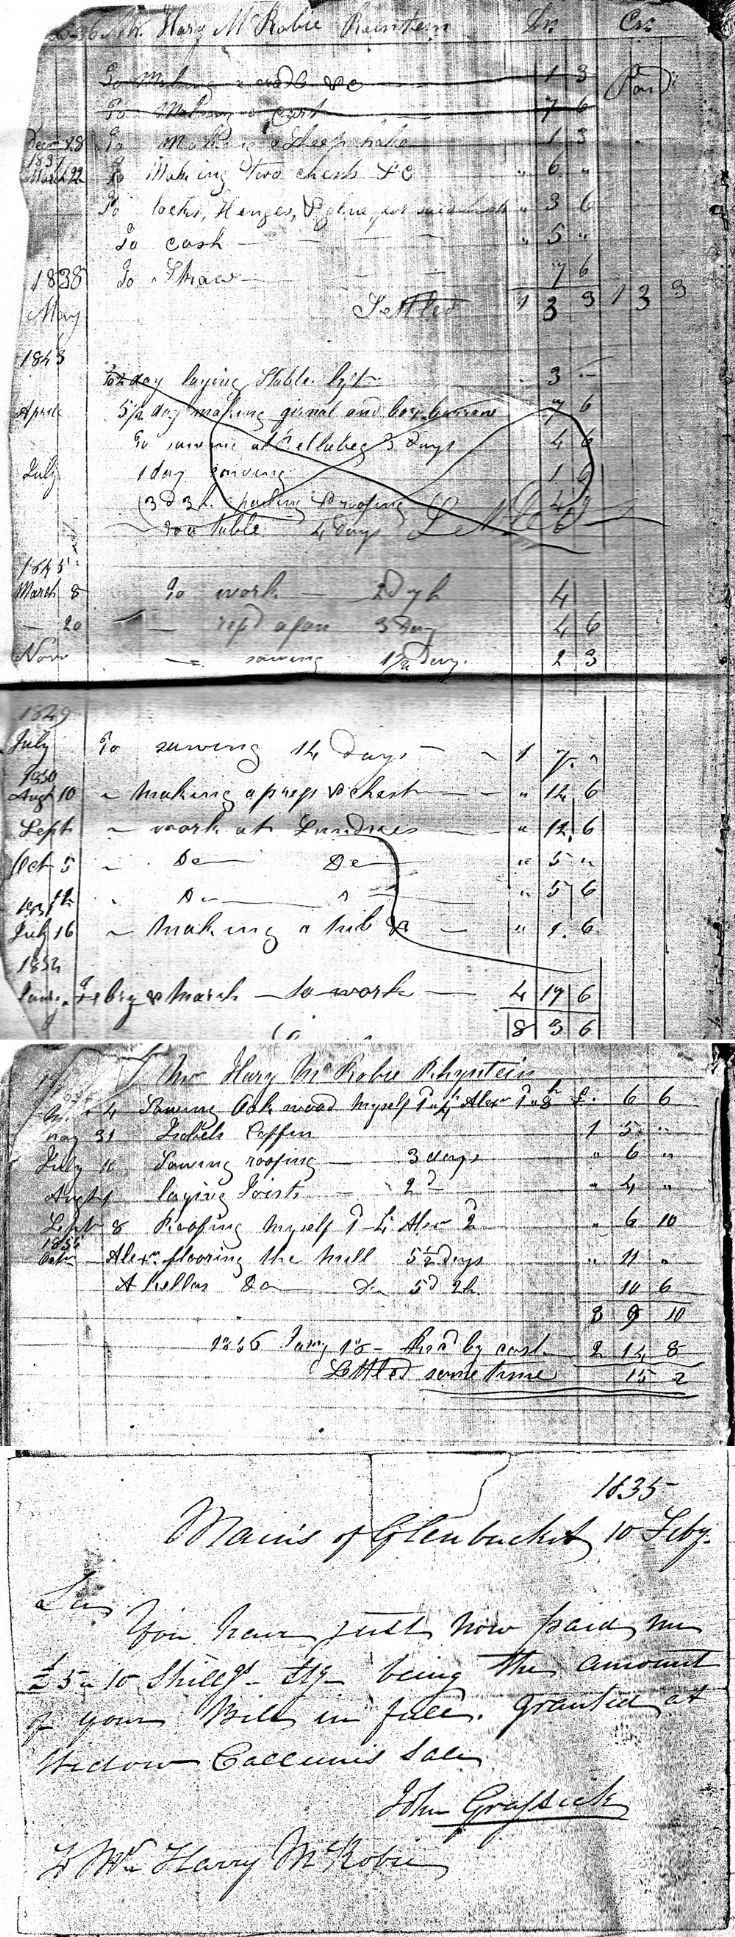 Mr. Hary McRobie Rainten Dr. Cr.
To Making a &c 1 3 Paid
To Making a cart 7 6
Decr 28 To Making a Sheep rake 1 3
1837
March 22 To Making two chests &c 6 "
To locks, Henges, & glue for " 3 6
To cash " 5 "
To Straw 7 6
1838
May Settled 1 3 3 1 3 3
1843
2 day laying Stable 3 -
April 5½ day making girnal and box barrow 7 6
To sawing at 3 days 4 6
July 1 day sawing 1 6
3 d 3 h. & roofing 4
To a table 4 days Settled 6
1845
March 8 To work 2 Dys 4
- 20 - 3 Day 4 6
Novr - sawing 1½ Day. 2 3
1849
July To sawing 14 Days - " 1 7 "
1850
Augt 10 " Making a & chest " 12 6
Sept " work at Lundries " 12 6
Oct 5 " Do Do " 5 "
" Do " " 5 6
1851
July 16 " Making a tub & " 1 6
1852
Janry. Febry & March To work 4 17 6
8 3 6
Mr Hary McRobie Rhynstein
4 Sawing Ash wood Myself Alexr £ . 6 6
May 31 Isobels Coffin 1 5 "
July 16 Sawing roofing 3 days " 6 "
Augt 1 laying Joists 2 d " 4 "
Sept 8 Roofing Myself Alexr 2 " 6 10
1855
Alexr flooring the Mill 5½ days " 11 "
A Kellas Do Do 5 d 2h 10 6
3 9 10
1856 Jany 18 - Recd by cash 2 14 8
Settled same time 15 2
1835
Mains of Glenbucket 10 Feby.
Sir
You have just now paid me
£5 - 10 Shillgs - Stg - being the amount
of your Bill in full. Granted at
Widow Callums Sale
John Grassick
To Mr Harry McRobie